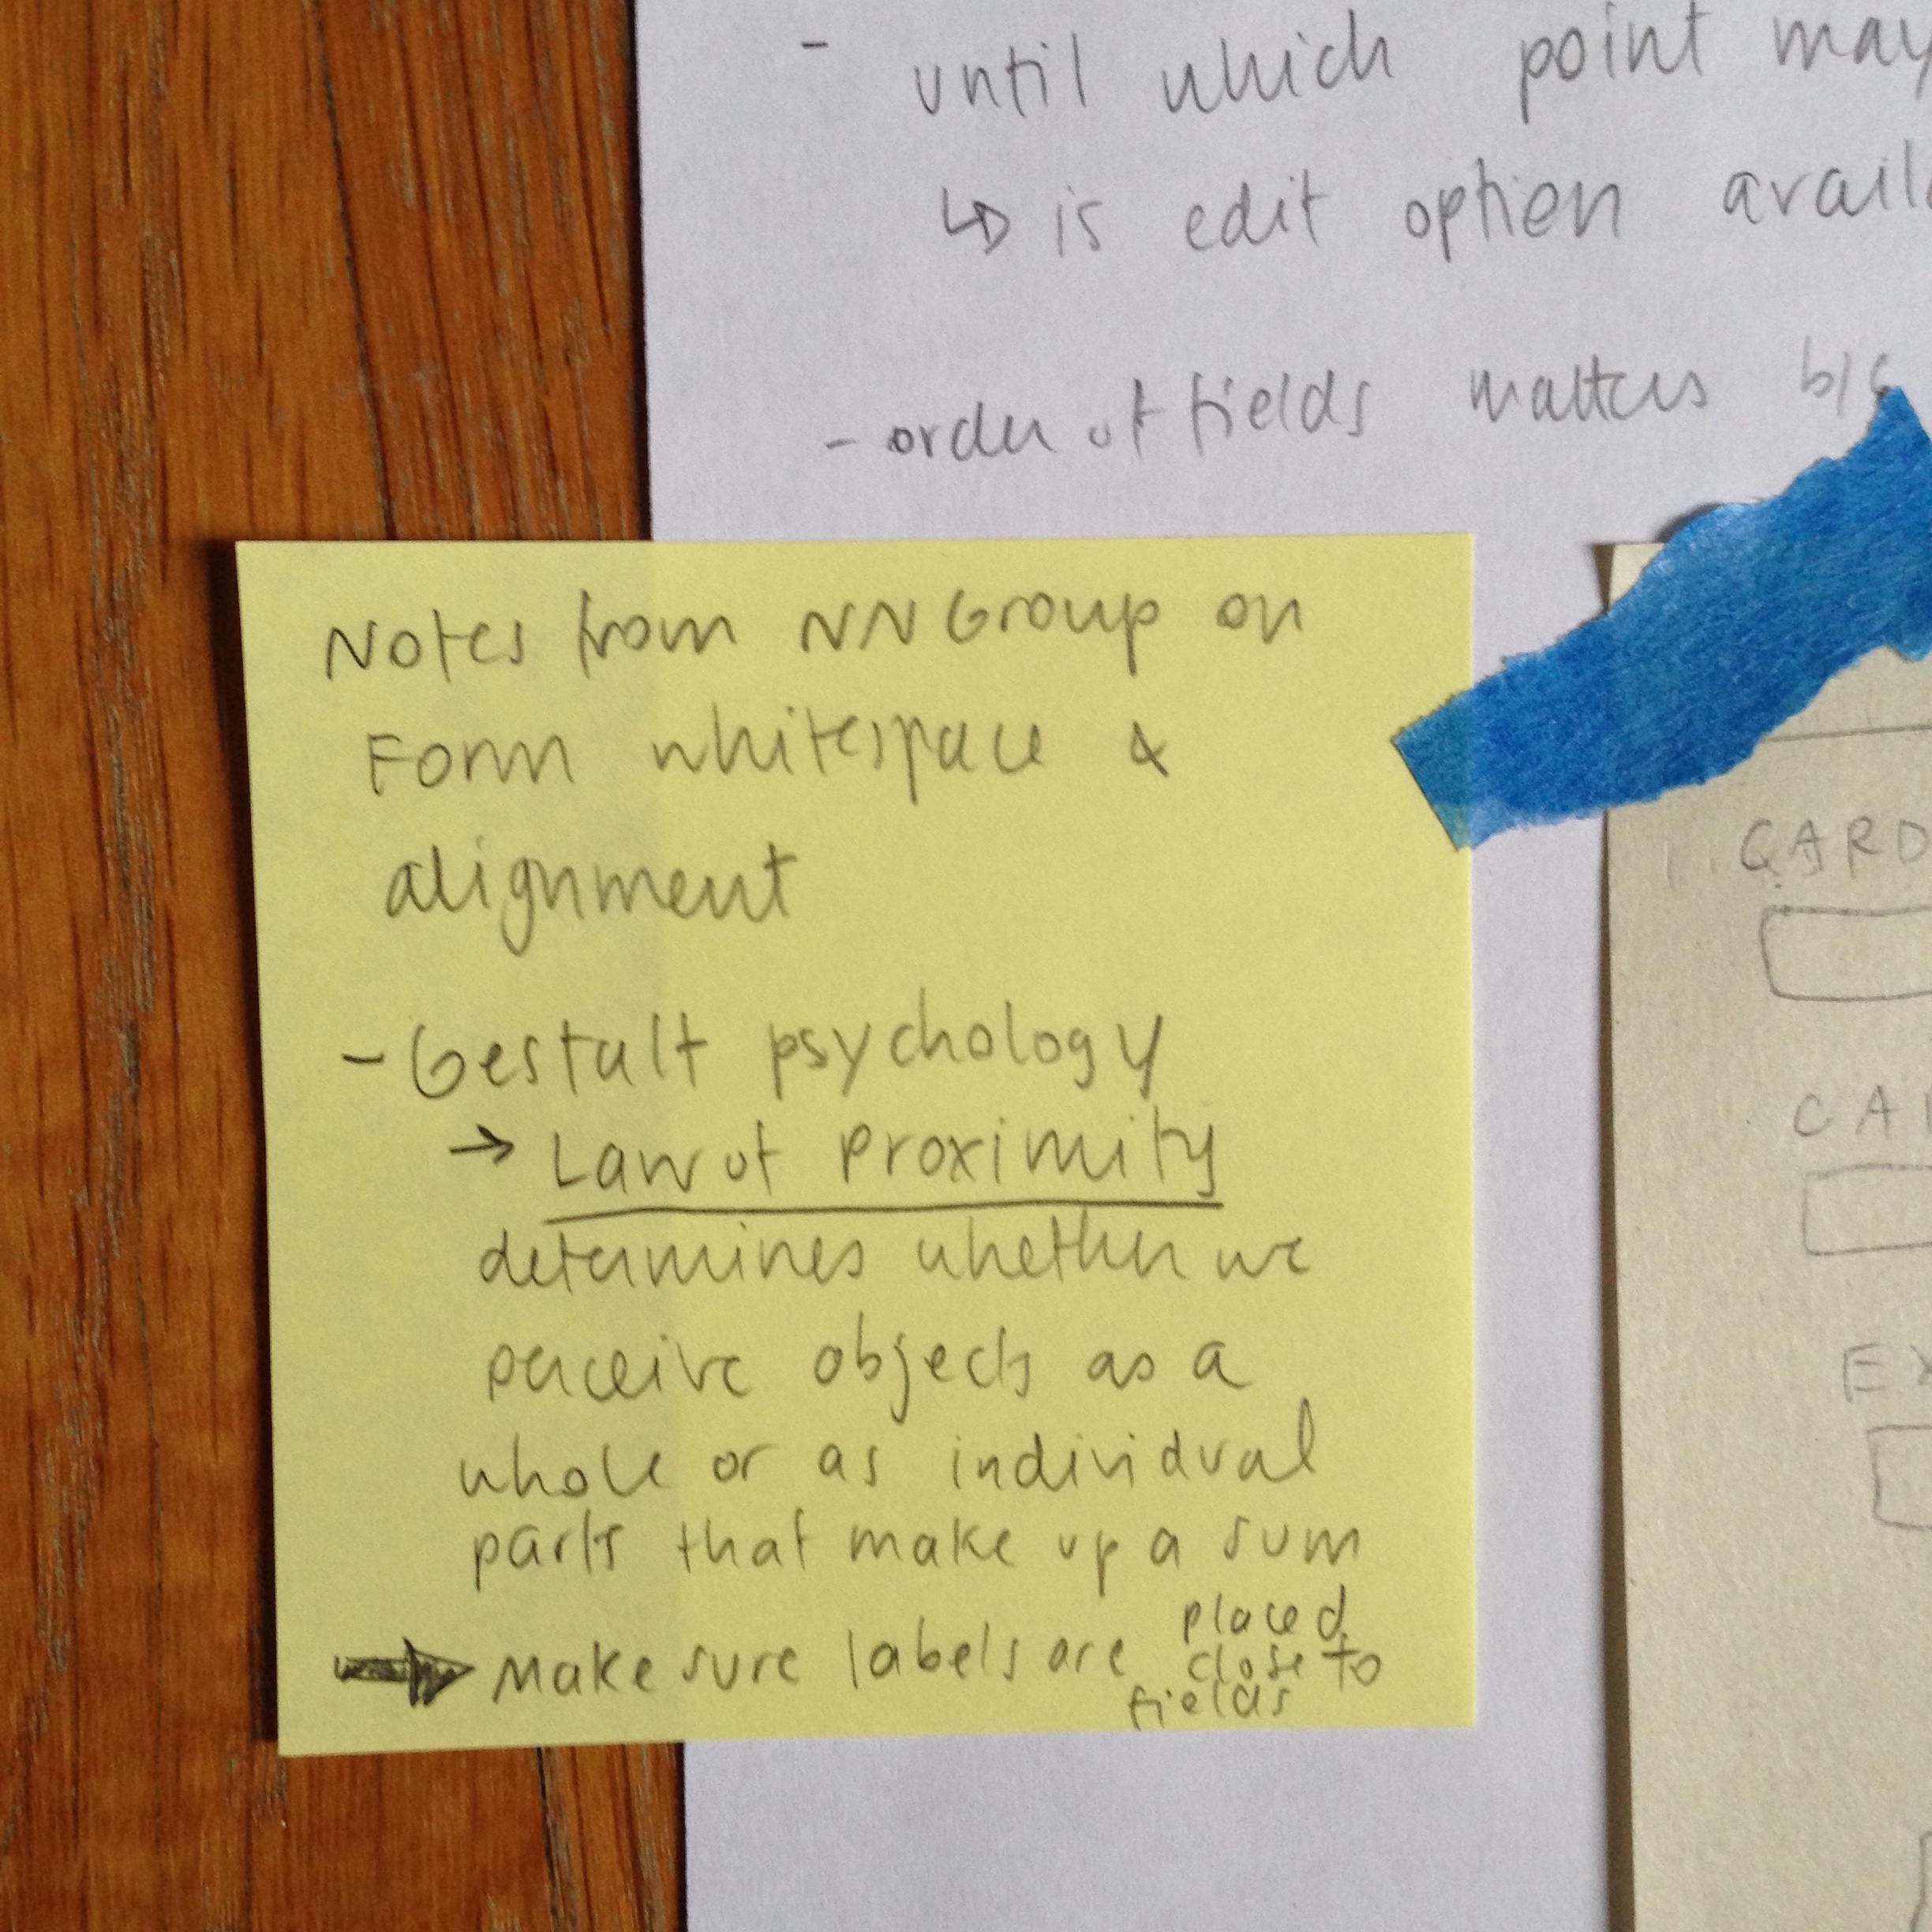 - until which point may
↳ is edit option
- order of fields matters b/c
Notes from NN Group on
Form whitespace &
alignment
- Gestalt psychology
→ Law of Proximity
determines whether we
perceive objects as a
whole or as individual
parts that make up a sum
→ Make sure labels are placed
close to
fields
CARD